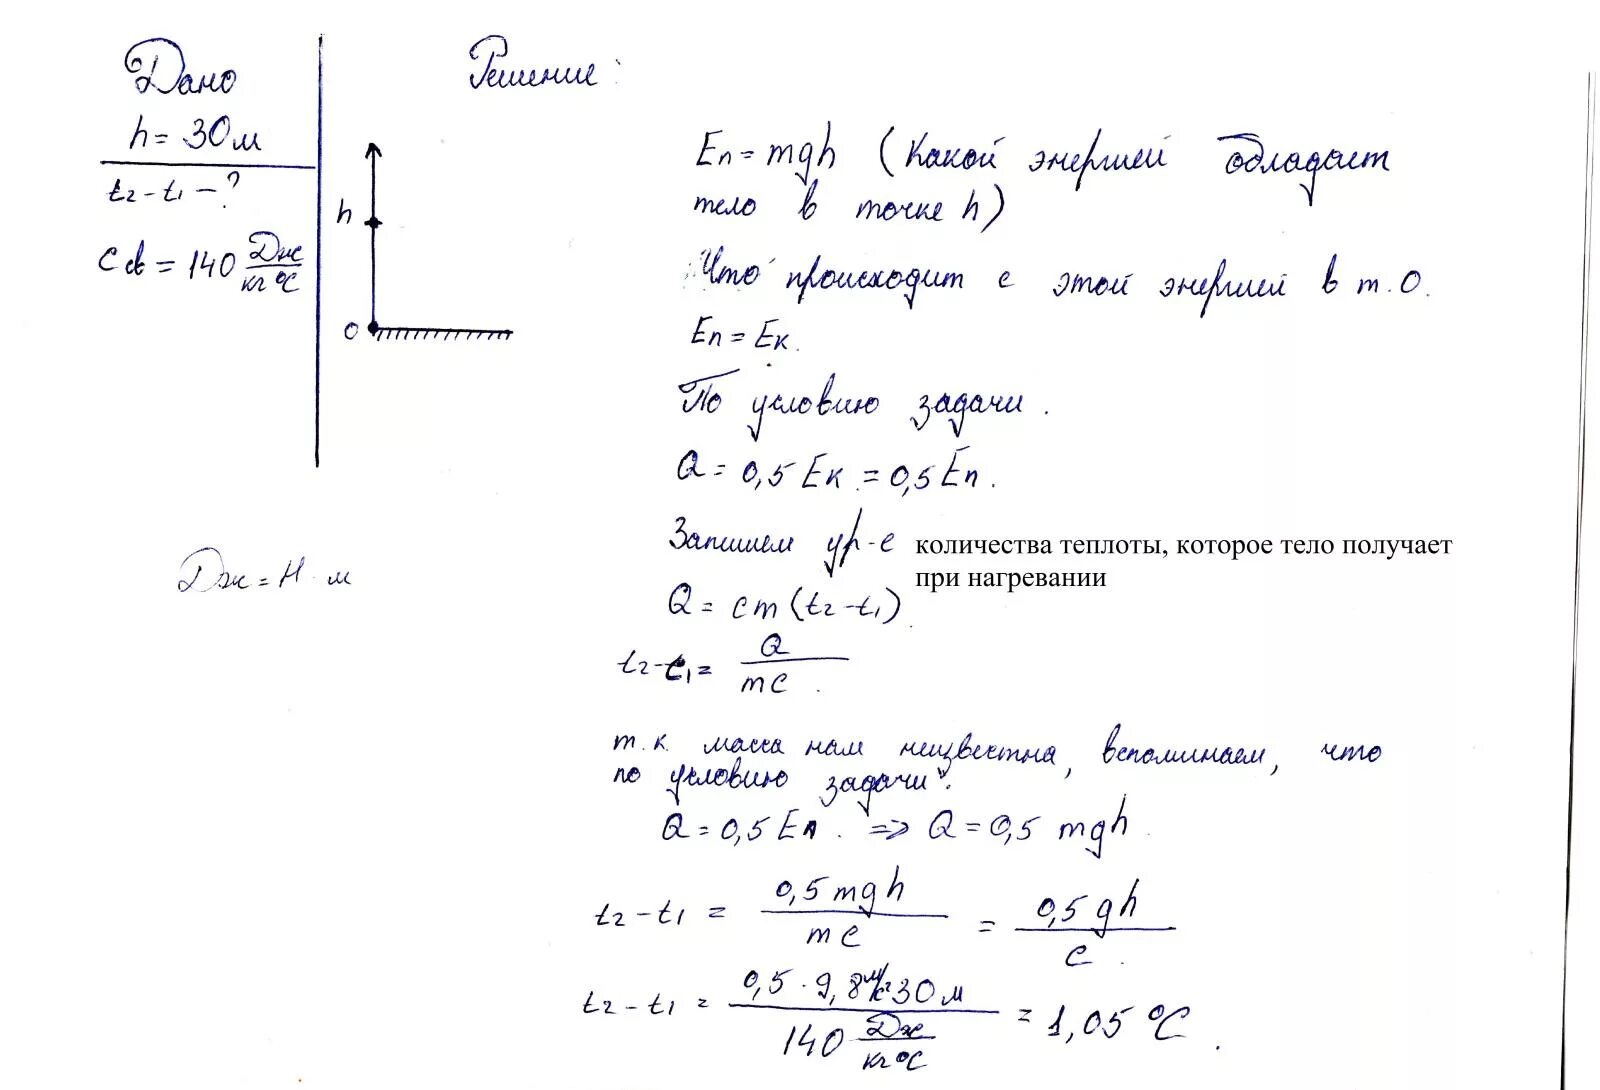 Дано
h = 30 м
t₂ - t₁ - ?
C св = 140 Дж/кг°С
h
0
Дж = Н · м
Решение :
Eп = mgh (Какой энергией обладает
тело в точке h)
Что происходит с этой энергией в т. О.
Eп = Eк.
По условию задачи.
Q = 0,5 Eк. = 0,5 Eп.
Запишем ур-е количества теплоты, которое тело получает
при нагревании
Q = cm (t₂ - t₁)
t₂ - t₁ = Q/mc.
т.к. масса нам неизвестна, вспоминаем, что
по условию задачи":
Q = 0,5 Eп. => Q = 0,5 mgh.
t₂ - t₁ = 0,5 mgh/mc = 0,5 gh/c.
t₂ - t₁ = 0,5 · 9,8 м/кг 30 м/140 Дж/кг°С = 1,05 °С.